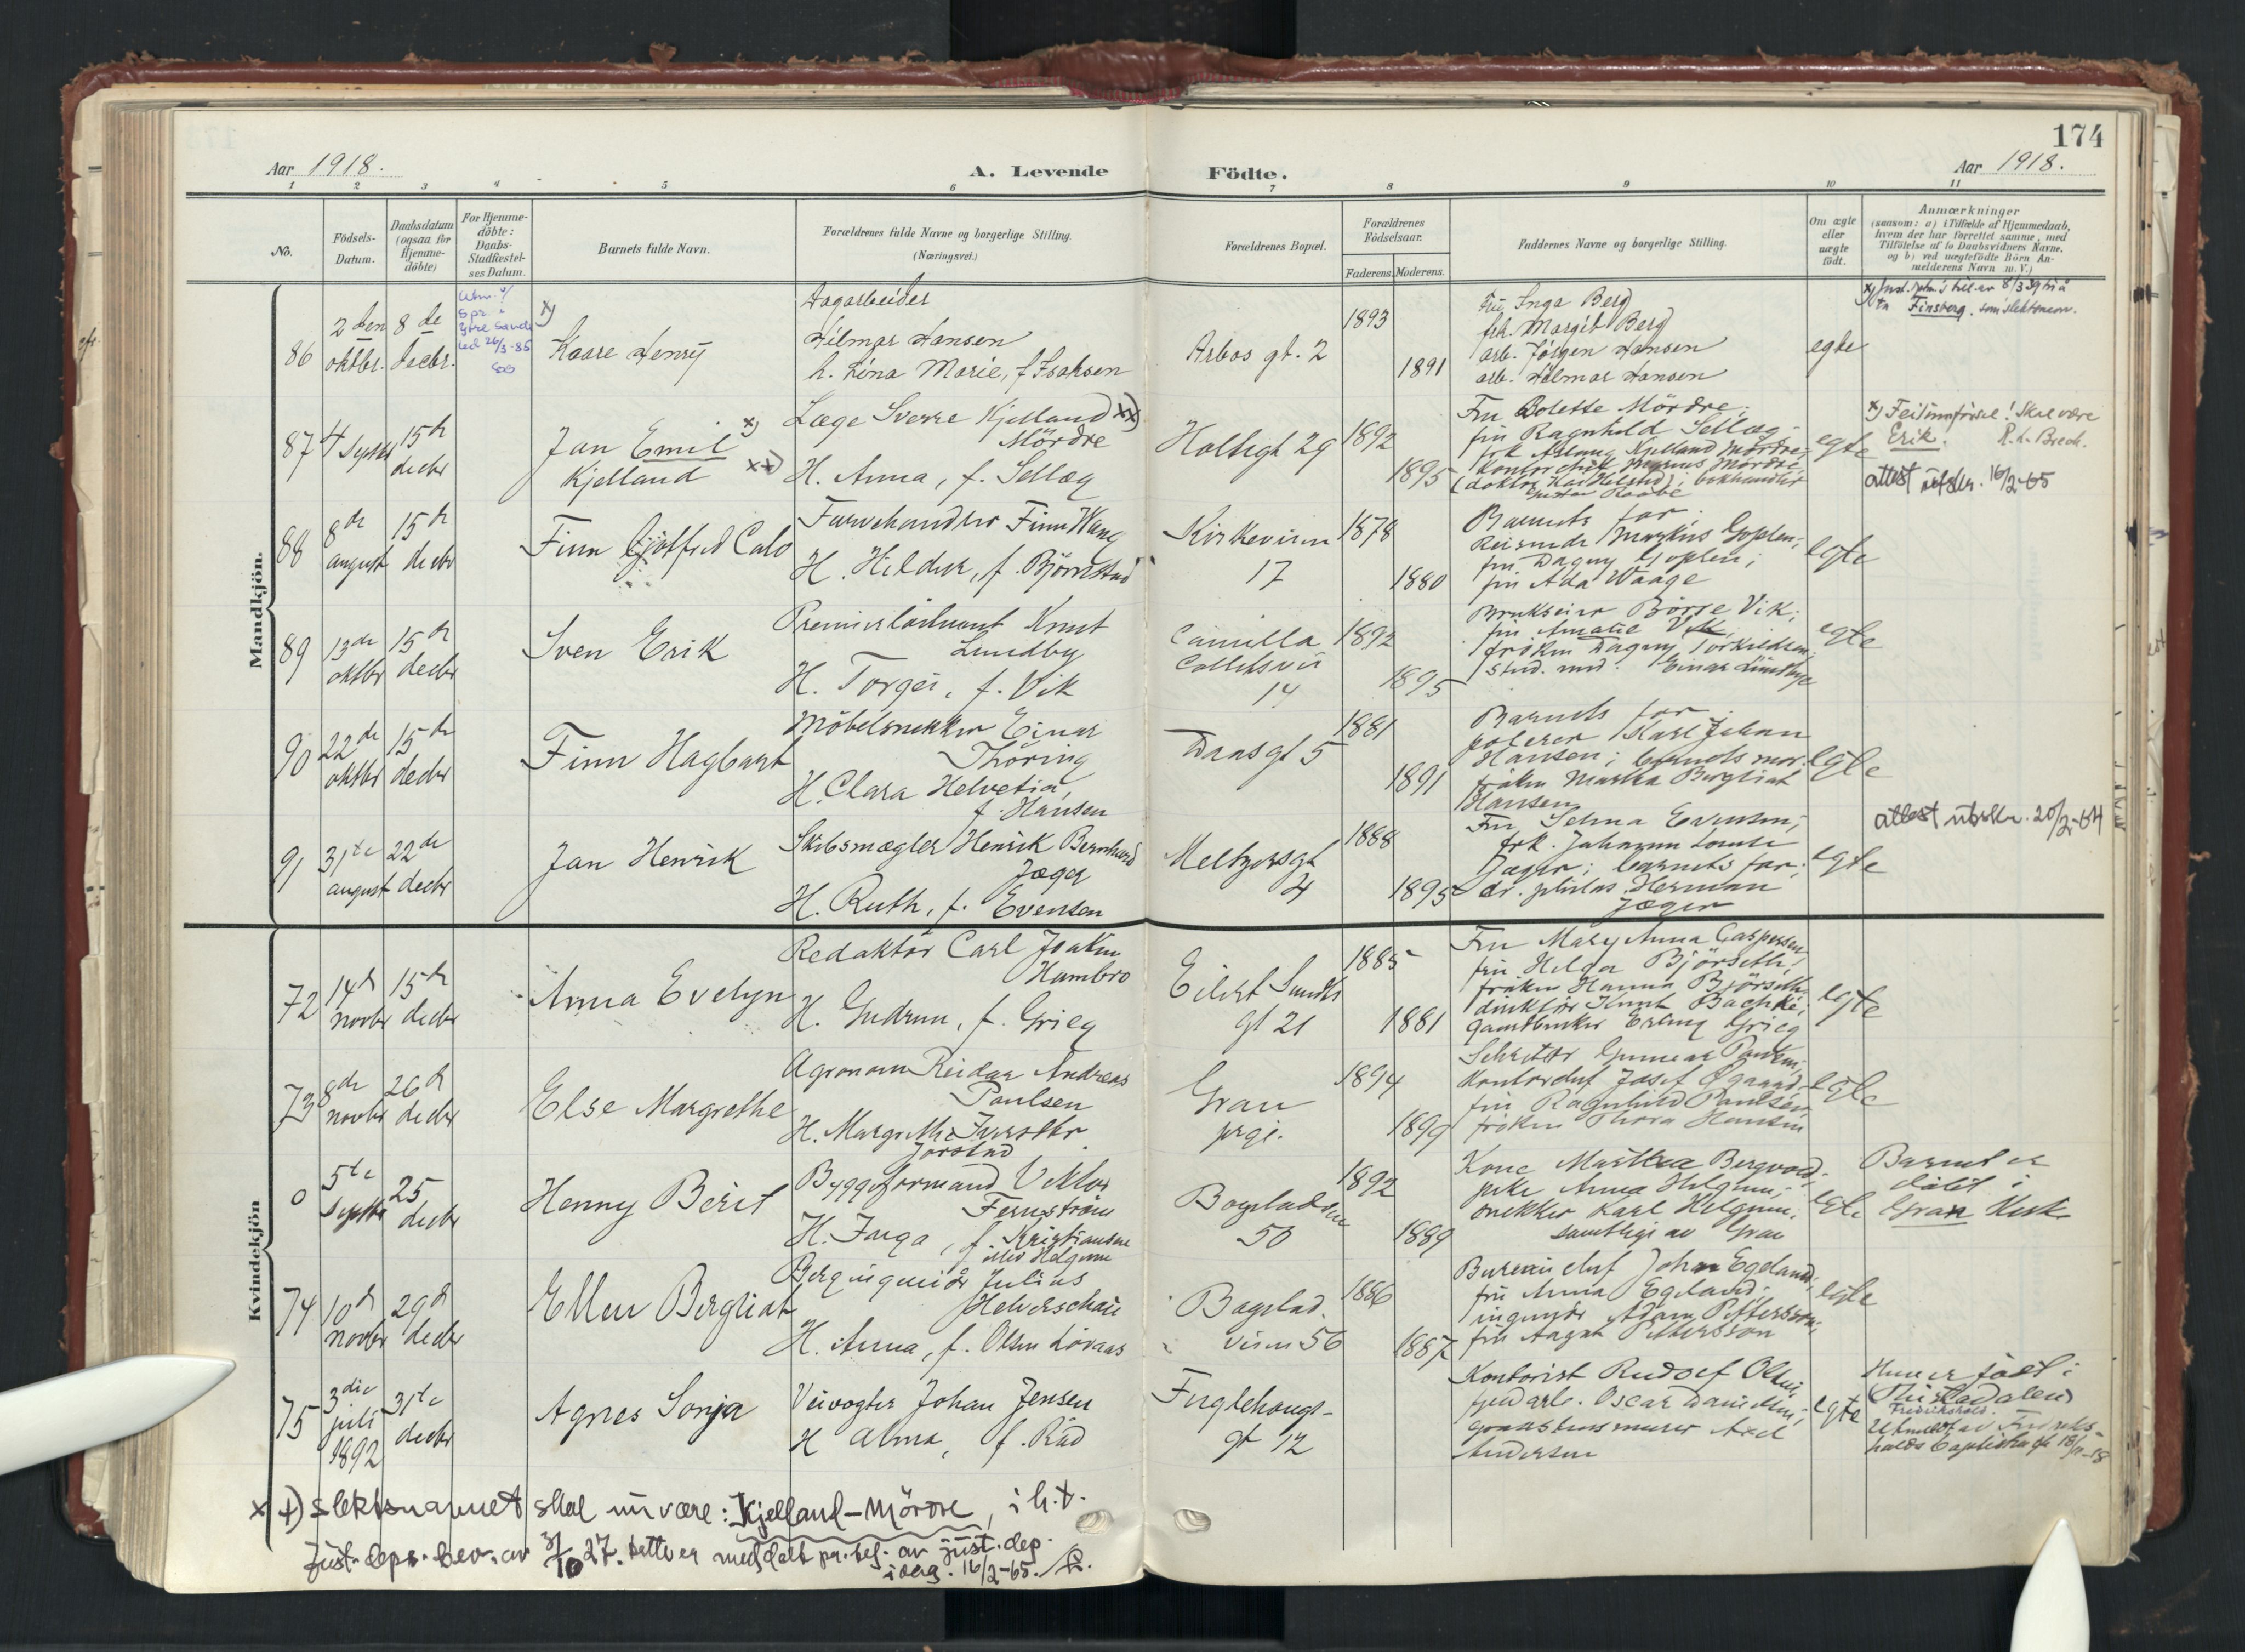 174
Aar 1918.
A. Levende Födte.
Aar 1918.
1 2 3 4 5 6 7 8 9 10 11
No.
Födsels-
Datum.
Daabsdatum
(ogsaa for
Hjemme-
döbte)
For Hjemme-
döbte:
Daabs-
Stadfæstel-
ses Datum.
Barnets fulde Navn.
Forældrenes fulde Navne og borgerlige Stilling.
(Næringsvei.)
Forældrenes Bopæl.
Forældrenes
Födselsaar.
Faderens. Moderens.
Faddernes Navne og borgerlige Stilling.
Om ægte
eller
uægte
födt.
Anmærkninger
(saasom: a) i Tilfælde af Hjemmedaab,
hvem der har forrettet samme, med
Tilföielse af to Daabsvidners Navne,
og b) ved uægtefödte Börn An-
melderens Navn m. V.)
Mandkjön.
86
2den
oktbr.
8de
decbr.
x)
Kaare Henry
Dagarbeider
Hilmar Hansen
h. Lina Marie, f. Isaksen
Arbos gt. 2
1893
1891
Fru Inga Berg
frk. Margit Berg
arb. Jörgen Hansen
arb. Hilmar Hansen
egte
x) Just. av 8/3 39 til å
Finsberg. som slektsnavn.
87
4 Septbr
15de
decbr
Jan Emil x)
Kjelland xx)
Læge Sverre Kjelland xx)
Mördre
H. Anna, f. Selläg
Holtegt 29
1892
1895
Fru Bolette Mördre;
fru Ragnhild Sellæg;
frk Aslaug Kjelland Mördre;
kontorchef Magnus Mördre,
bokhandler
Raabe
egte
x) Feilinnförsel! Skal være
Erik.
attest utskr. 16/2-65
88
8de
august
15de
decbr
Finn Gotfred Calo
Farvehandler Finn Wang
H. Hildur, f. Björnstad
Kirkeveien
17
1878
1880
Barnets far;
Reisende Markus Goplen;
fru Dagny Goplen;
fru Ada Waage
egte
89
13de
oktbr
15de
decbr
Sven Erik
Premierlöitnant Knut
Lundby
H. Torgei, f. Vik
Camilla
Collettsvei
14
1892
1895
Brukseier Börre Vik;
fru Amalie Vik;
fröken Dagny Torkildsen;
stud. med. Einar Lundbye
egte
90
22de
oktbr
15de
decbr
Finn Hagbart
Möbelsnekker Einar
Thöring
H. Clara Helvetia,
f. Hansen
Daasgt 5
1881
1891
Barnets far;
polerer Karl Johan
Hansen; barnets mor;
fröken Martha Bergliot
Hansen
egte
91
31te
august
22de
decbr
Jan Henrik
Skibsmægler Henrik Bernhard
Jæger
H. Ruth, f. Evensen
Meltzersgt
4
1888
1895
Fru Selma Evensen;
frk. Johanne Louise
Jæger; barnets far;
dr. philos. Herman
Jæger
egte
attest utskr. 20/2-64
Kvindekjön
72
14de
novbr
15de
decbr
Anna Evelyn
Redaktör Carl Joakim
Hambro
H. Gudrun, f. Grieg
Eilert Sundts
gt 21
1885
1881
Fru Mary Anna Caspersen;
fru Helga Björseth;
fröken Hanna Björseth;
direktör Knut Bachke;
gaardbruker Erling Grieg
egte
73
8de
novbr
26de
decbr
Else Margrethe
Agronom Reidar Andreas
Paulsen
H. Margrethe
Jorstad
Gran
prgj.
1894
1899
Gunnar Paulsen;
Kontorchef Josef Ögaard;
fru Ragnhild Paulsen
fröken Thora Hansen
egte
0
5te
Septbr
25
decbr
Henny Berit
Byggeformand Viktor
Fernström
H. Inga, f. Kristiansen
Bogstadveien
50
1892
1889
Kone Marthea Bergvad;
pike Anna Helgum;
snekker Karl Helgum;
samtlige av Gran
egte
Barnet er
döbt i
Gran Kirke
74
10de
novbr
29de
decbr
Ellen Bergliot
Bergingeniör Julius
Helverschau
H. Anna, f. Olsen Lövaas
Bogstad
veien 56
1886
1887
Bureauchef Johan Egeland;
fru Anna Egeland;
ingeniör Adam Pettersson;
fru Aagot Pettersson
egte
75
3die
juli
1892
31te
decbr
Agnes Sonja
Veivogter Johan Jensen
H Alma, f. Räd
Fuglehaugs-
gt 12
Kontorist Rudolf Olsen,
arb. Oscar Danielsen;
graastensmurer Axel
Andersen
egte
Hun er födt i
Tistedalen
Fredrikshald.
Utmeldt av Fredriks-
halds
xx) slektsnavnet skal nu være: Kjelland-Mördre, i h.t.
just. deps. bev. av 3/10 27. Dette er meddelt pr. tlf. av just. dep.
idag. 16/2-65.